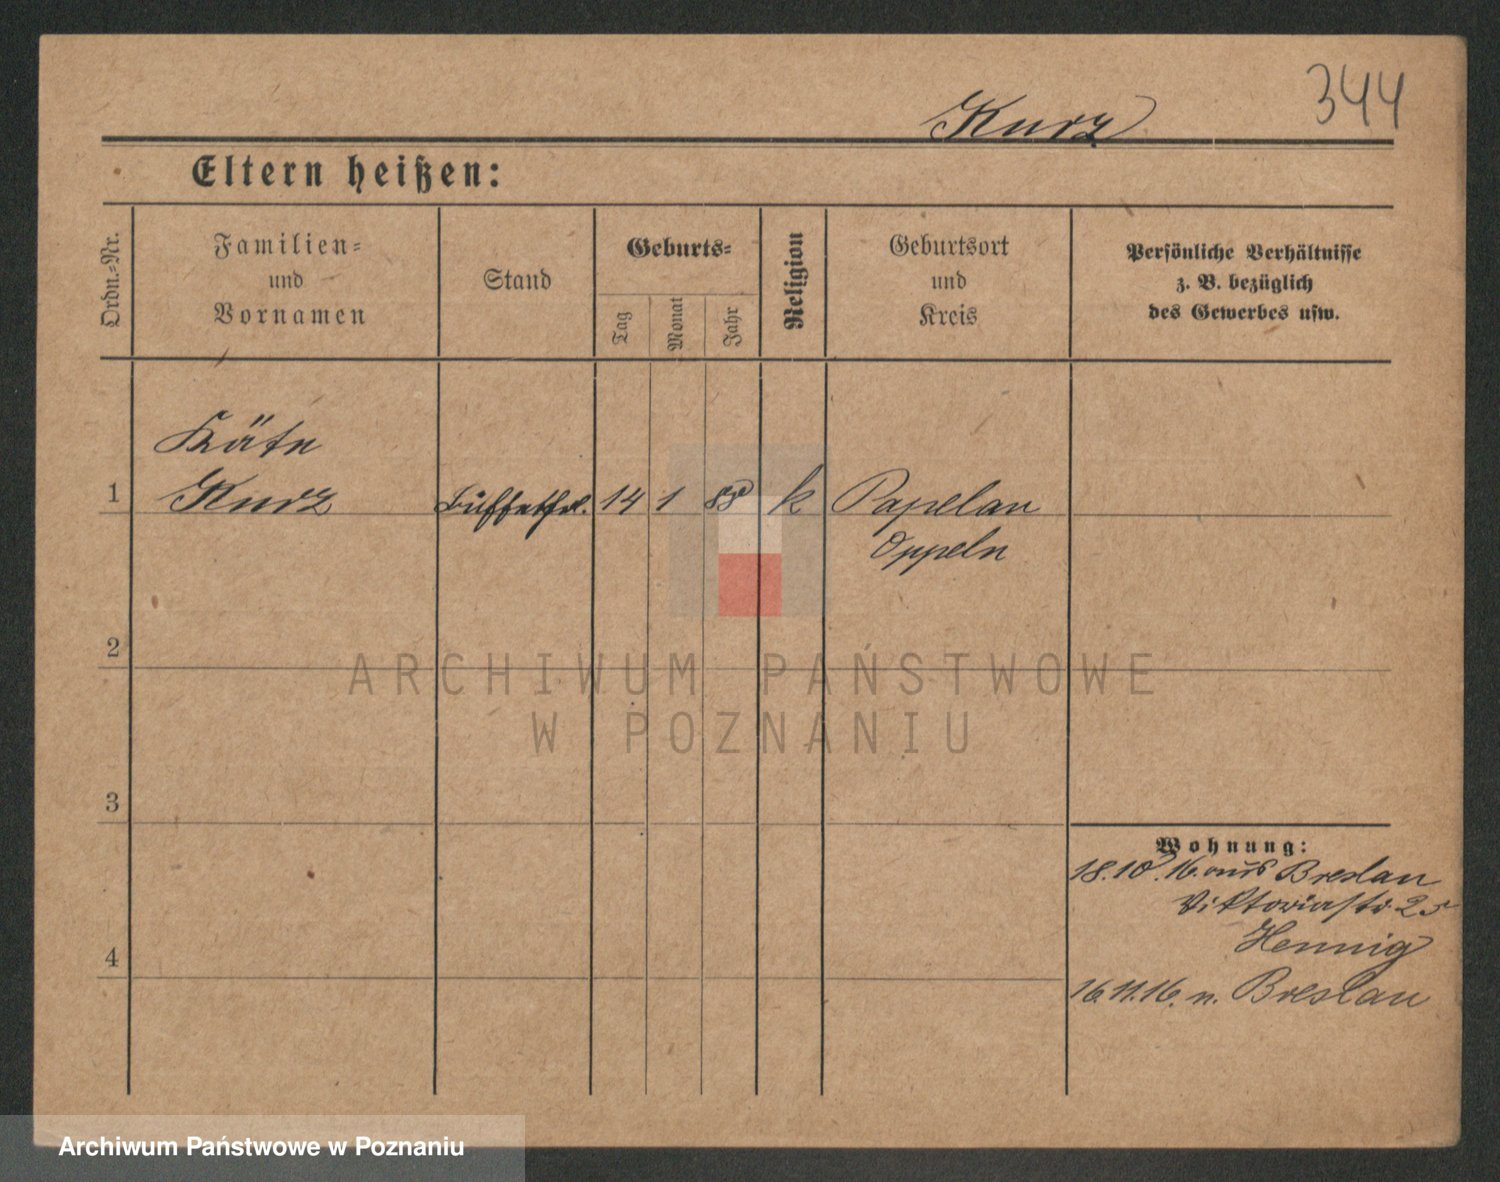 344
Kurz
Eltern heißen:
Ordn.-Nr.
Familien-
und
Vornamen
Stand
Geburts-
Tag
Monat
Jahr
Religion
Geburtsort
und
Kreis
Persönliche Verhältnisse
z. B. bezüglich
des Gewerbes usw.
Käte
1 Kurz Büffetfrl. 14 1 88 k Papelau
Oppeln
2
ARCHIWUM PAŃSTWOWE
W POZNANIU
3
Wohnung:
18.10.16. aus Breslau
Viktoriastr. 25
Hennig
4
16.11.16. n. Breslau
Archiwum Państwowe w Poznaniu